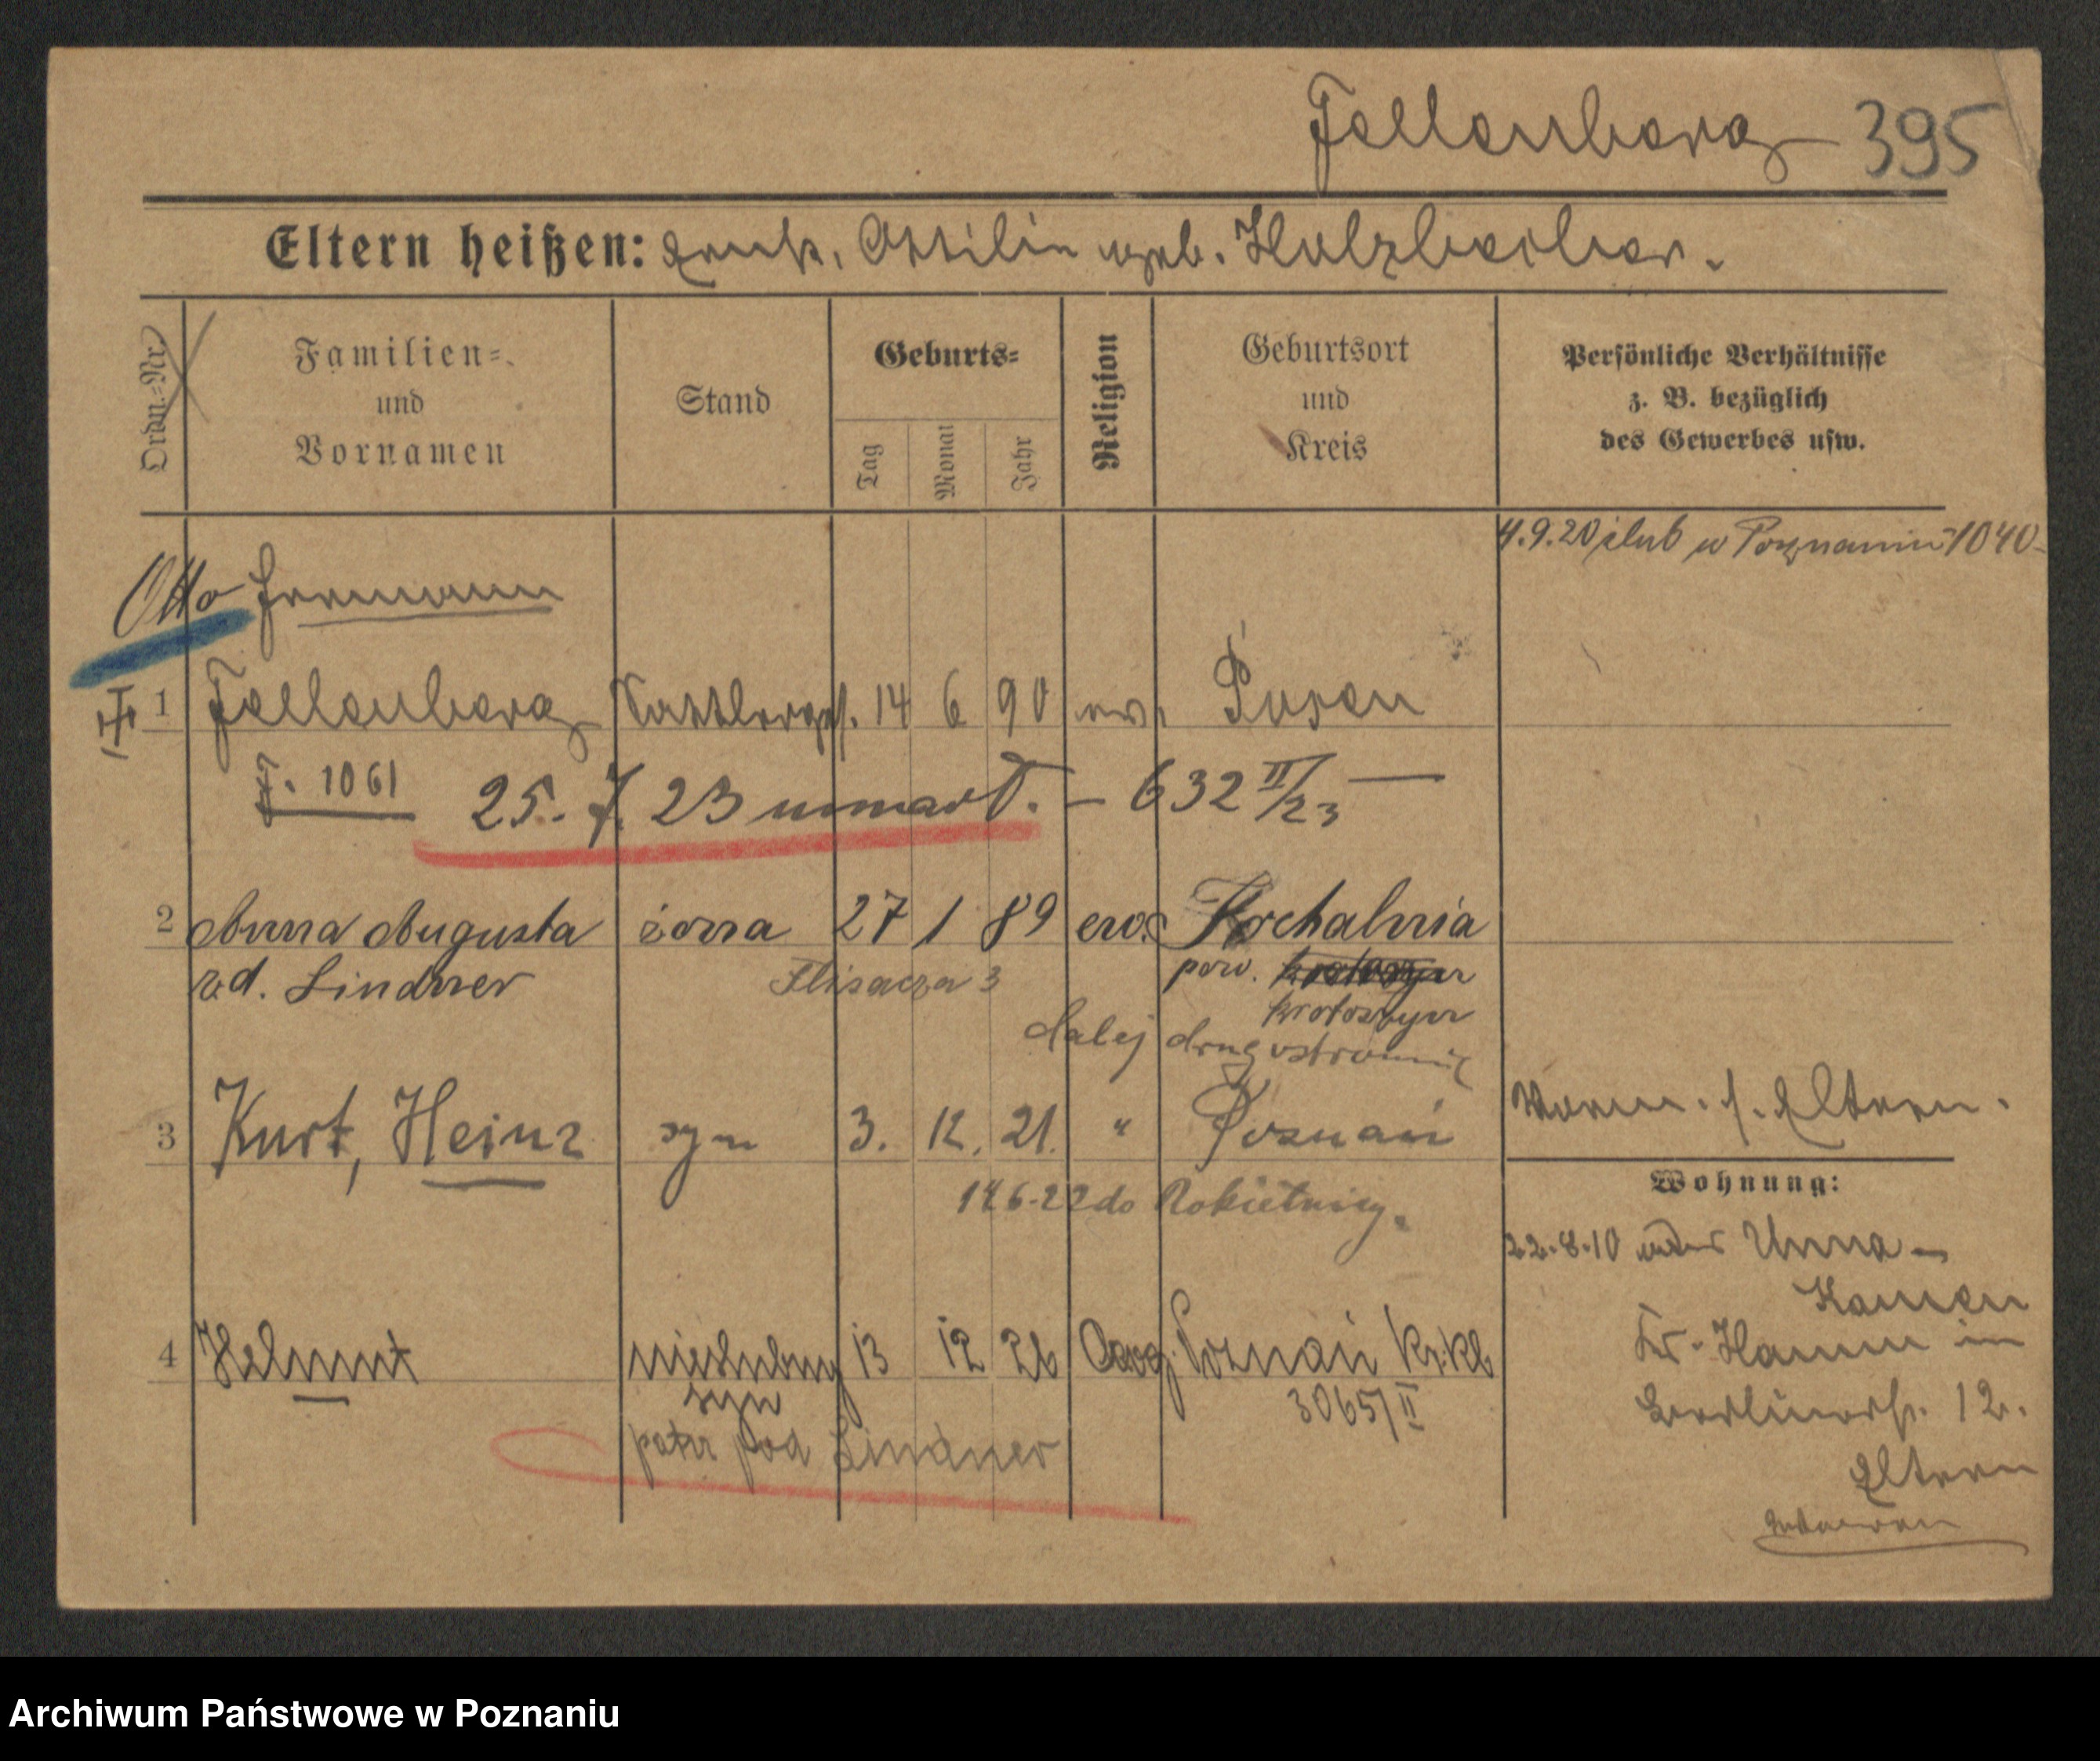 Fellenberg 395
Eltern heißen: Ottilie geb. Holzbecher.
Ordn.-Nr.
Familien-
und
Vornamen
Stand
Geburts-
Tag
Monat
Jahr
Religion
Geburtsort
und
Kreis
Persönliche Verhältnisse
z. B. bezüglich
des Gewerbes usw.
4.9.20 ślub w Poznaniu 1040
Otto Hermann
1 Fellenberg Sattlerges. 14 6 90 ev. Posen
J. 1061
25. 7. 23 umarł. – 632 II/23 —
2 Anna Augusta żona 27 1 89 ew. Kochalnia
zd. Lindner Flisacza 3 pow.
Krotoszyn
dalej drugostronnie
3 Kurt, Heinz syn 3. 12. 21. " Poznań
Vorm. s. Eltern.
Wohnung:
146-22 do Rokietnicy.
22.8.10 Unna-
Kamen
4 Helmut nieślubny 13 12 26 Ewg. Poznań Kr.Kl.
syn 3065/II
Kr. Hamm in
12.
patrz pod Lindner
Eltern